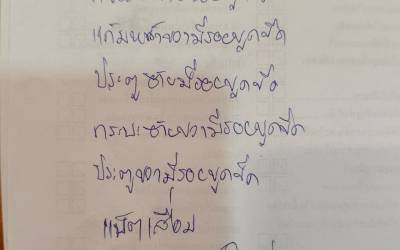 แก้มหน้าขวามีรอยขูดขีด
ประตูซ้ายมีรอยขูดขีด
กระบะซ้ายขวามีรอยขูดขีด
ประตูขวามีรอยขูดขีด
แบตเสื่อม